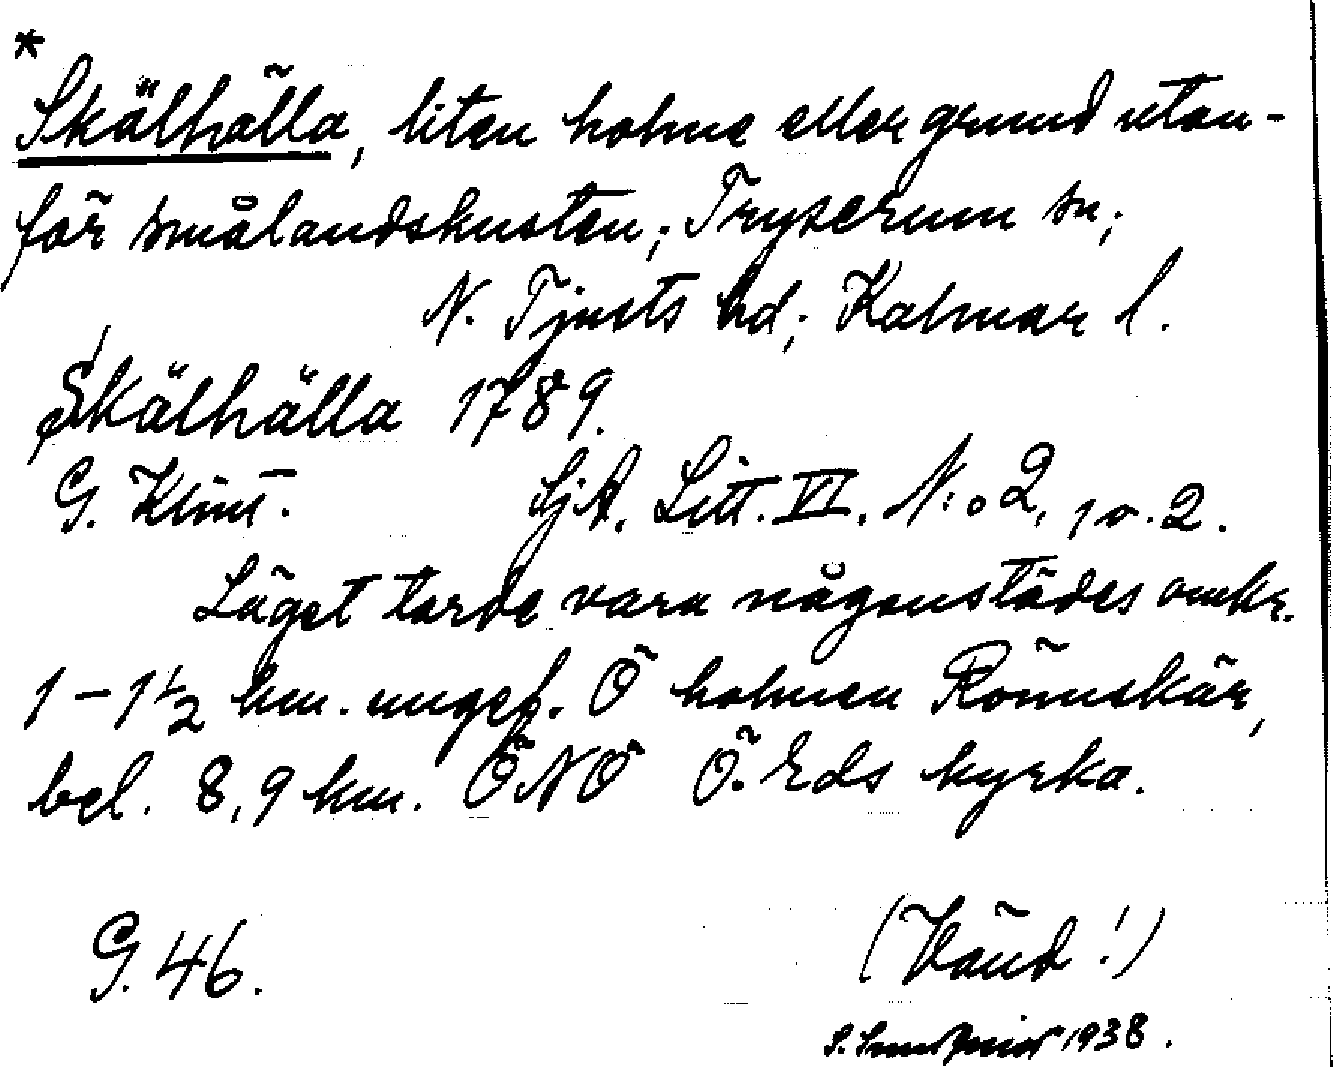 *
Skälhälla, liten holme eller grund utan-
för smålandskusten; Tryserum sn;
N. Tjusts hd; Kalmar l.
Skälhälla 1789.
G. Klint. SjA. Litt. VI. N:o 2, p. 2.
Läget torde vara någonstädes omkr.
1-1½ km. ungef. Ö holmen Rönnskär,
bel. 8,9 km. ÖNÖ Ö. Eds kyrka.
G. 46. (Vänd!)
1938.